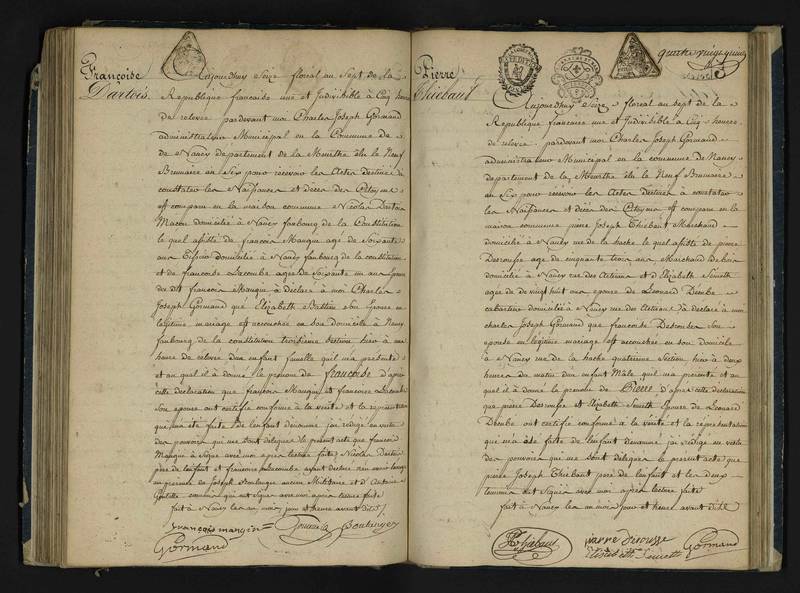 Françoise
Dartois
Aujourdhuy Seize floréal au Sept de la
Republique francaise une et Indivisible à Cinq heures
de relevée pardevant moi Charles Joseph Gormand
administrateur Municipal en la Commune de
de Nancy departement de la Meurthe élu le Neuf
Brumaire an Six pour recevoir les Actes destinés à
constater les Naissances et décès des Citoyens
est comparu en la maison commune Nicolas Dartois
Macon domicilié à Nancy faubourg de la Constitution
le quel assisté de françois Mangin agé de Soixante
ans domicilié à Nancy faubourg de la constitution
et de francoise Lecombe agée de Soixante un ans épouse
du dit françois Mangin a déclaré à moi Charles
Joseph Gormand que Elizabeth Bastien Son Epouse en
légitime mariage est accouchée en son domicile à Nancy
faubourg de la constitution troisieme Section hier à une
heure de relevée d'un enfant femelle quil m'a présenté
et au quel il a donné le prenom de françoise d'après
cette déclaration que françois Mangin et francoise Lecombe
Son epouse ont certifié conforme à la vérité et la représentation
qui m'a été faite de l'enfant dénommé j'ai rédigé en vertu
des pouvoirs qui me sont délégués le présent acte que françois
Mangin a Signé avec moi après lecture faite Nicolas Dartois
père de l'enfant et francoise Lecombe ayant déclaré
en présence de Joseph Boulanger ancien Militaire et d'Antoine
qui ont Signé avec moi après lecture faite
fait à Nancy les an mois jour et heure avant dits
françois mangin Boulanger
Gormand
quatre vingt quinze
Pierre
Thiébaut
Aujourdhuy Seize floréal au sept de la
République francaise une et Indivisible à Cinq heures
de relevée pardevant moi Charles Joseph Gormand
administrateur Municipal en la commune de Nancy
departement de la Meurthe élu le Neuf Brumaire
an Six pour recevoir les Actes destinés à constater
les Naissances et décès des Citoyens est comparu en la
maison commune pierre Joseph Thiébaut Marchand
domicilié à Nancy rue de la hache le quel assisté de pierre
Desrousse agé de cinquante trois ans Marchand
domicilié à Nancy rue des Artisans et d'Elizabeth Smeth
agée de vingt huit ans épouse de Léonard Dioube
cabartier domicilié à Nancy rue des Artisans a déclaré à moi
charles Joseph Gormand que francoise Desrousse Son
épouse en légitime mariage est accouchée en son domicile
à Nancy rue de la hache quatrième Section hier à deux
heures du matin d'un enfant Mâle quil m'a présenté et au
quel il a donné le prenom de Pierre d'après cette déclaration
que pierre Desrousse et Elizabeth Smeth épouse de Léonard
Dioube ont certifié conforme à la vérité et la représentation
qui m'a été faite de l'enfant dénommé j'ai rédigé en vertu
des pouvoirs qui me sont délégués le présent acte que
pierre Joseph Thiébaut père de l'enfant et les deux
témoins ont Signés avec moi après lecture faite
fait à Nancy les an mois jour et heure avant dits
Thiébaut pierre derousse Gormand